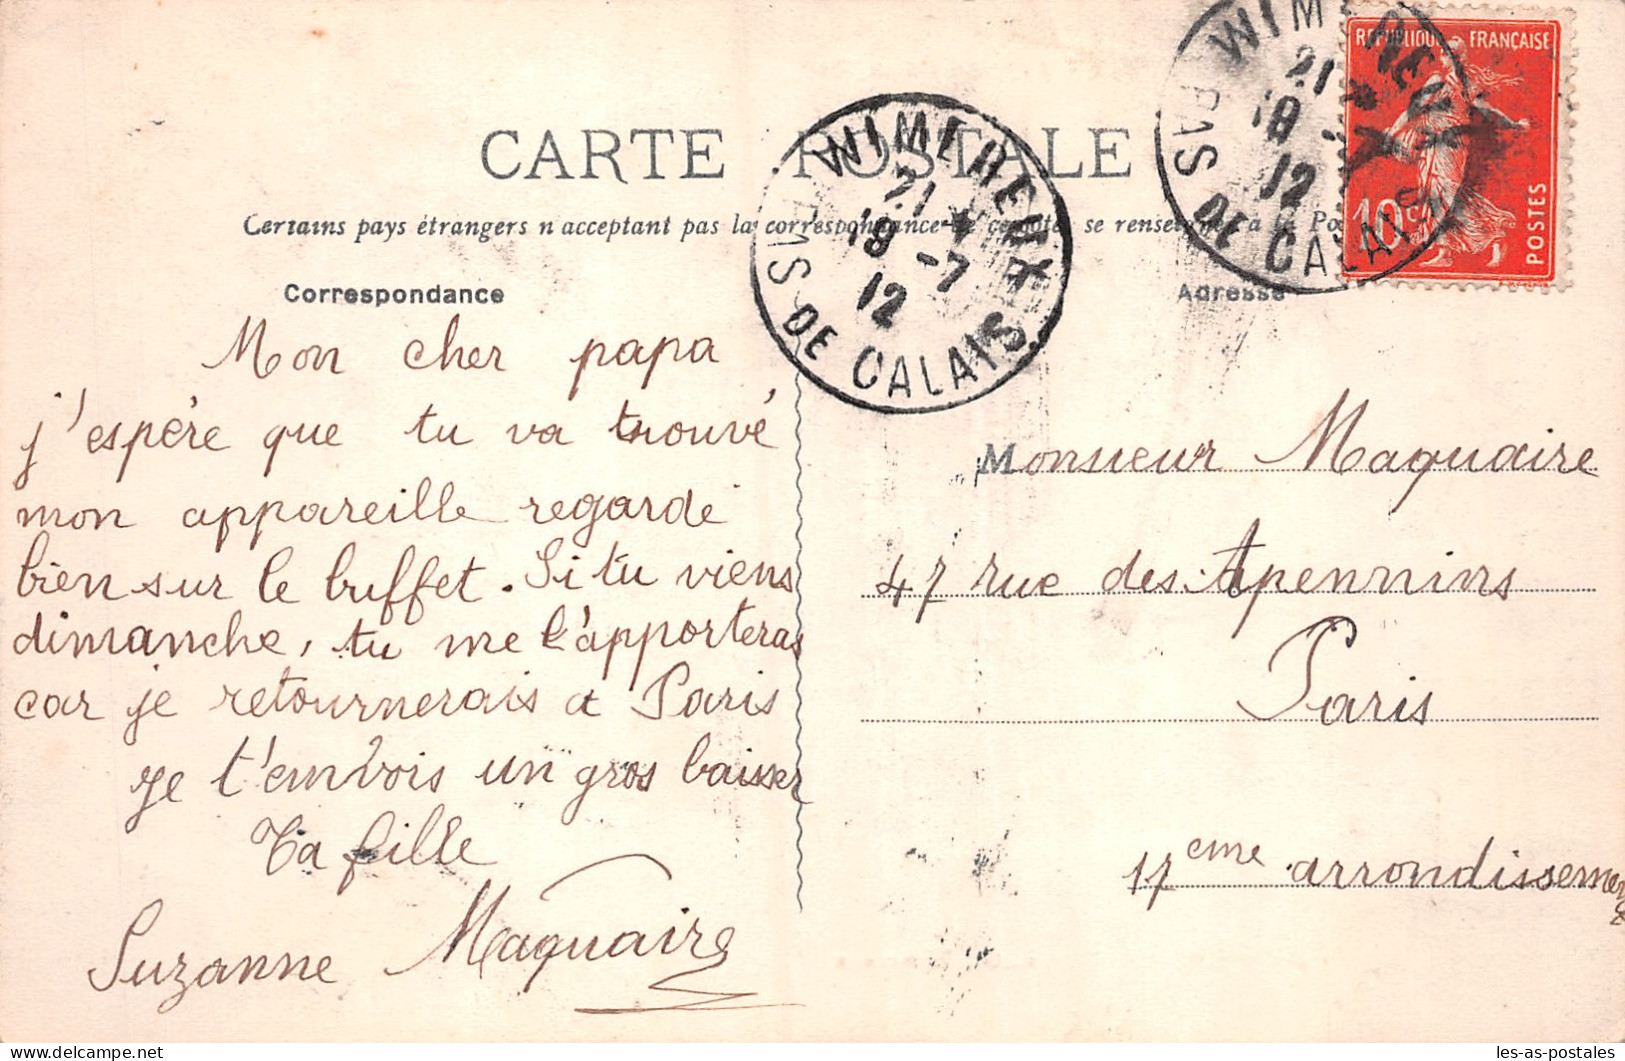 CARTE POSTALE
Certains pays étrangers n acceptant pas la correspondance se renseigner à la
Correspondance
Adresse
WIMEREUX
21
18 -7
12
PAS DE CALAIS
WIMEREUX
21
18
12
PAS DE CALAIS
REPUBLIQUE FRANÇAISE
10 c.
POSTES
Mon cher papa
j'espère que tu va trouvé
mon appareille regarde
bien sur le buffet. Si tu viens
dimanche, tu me l'apporteras
car je retournerais a Paris
Je t'envois un gros baiser
Ta fille
Suzanne Maquaire
Monsieur Maquaire
47 rue des Apennins
Paris
17eme arrondissement
les-as-postales